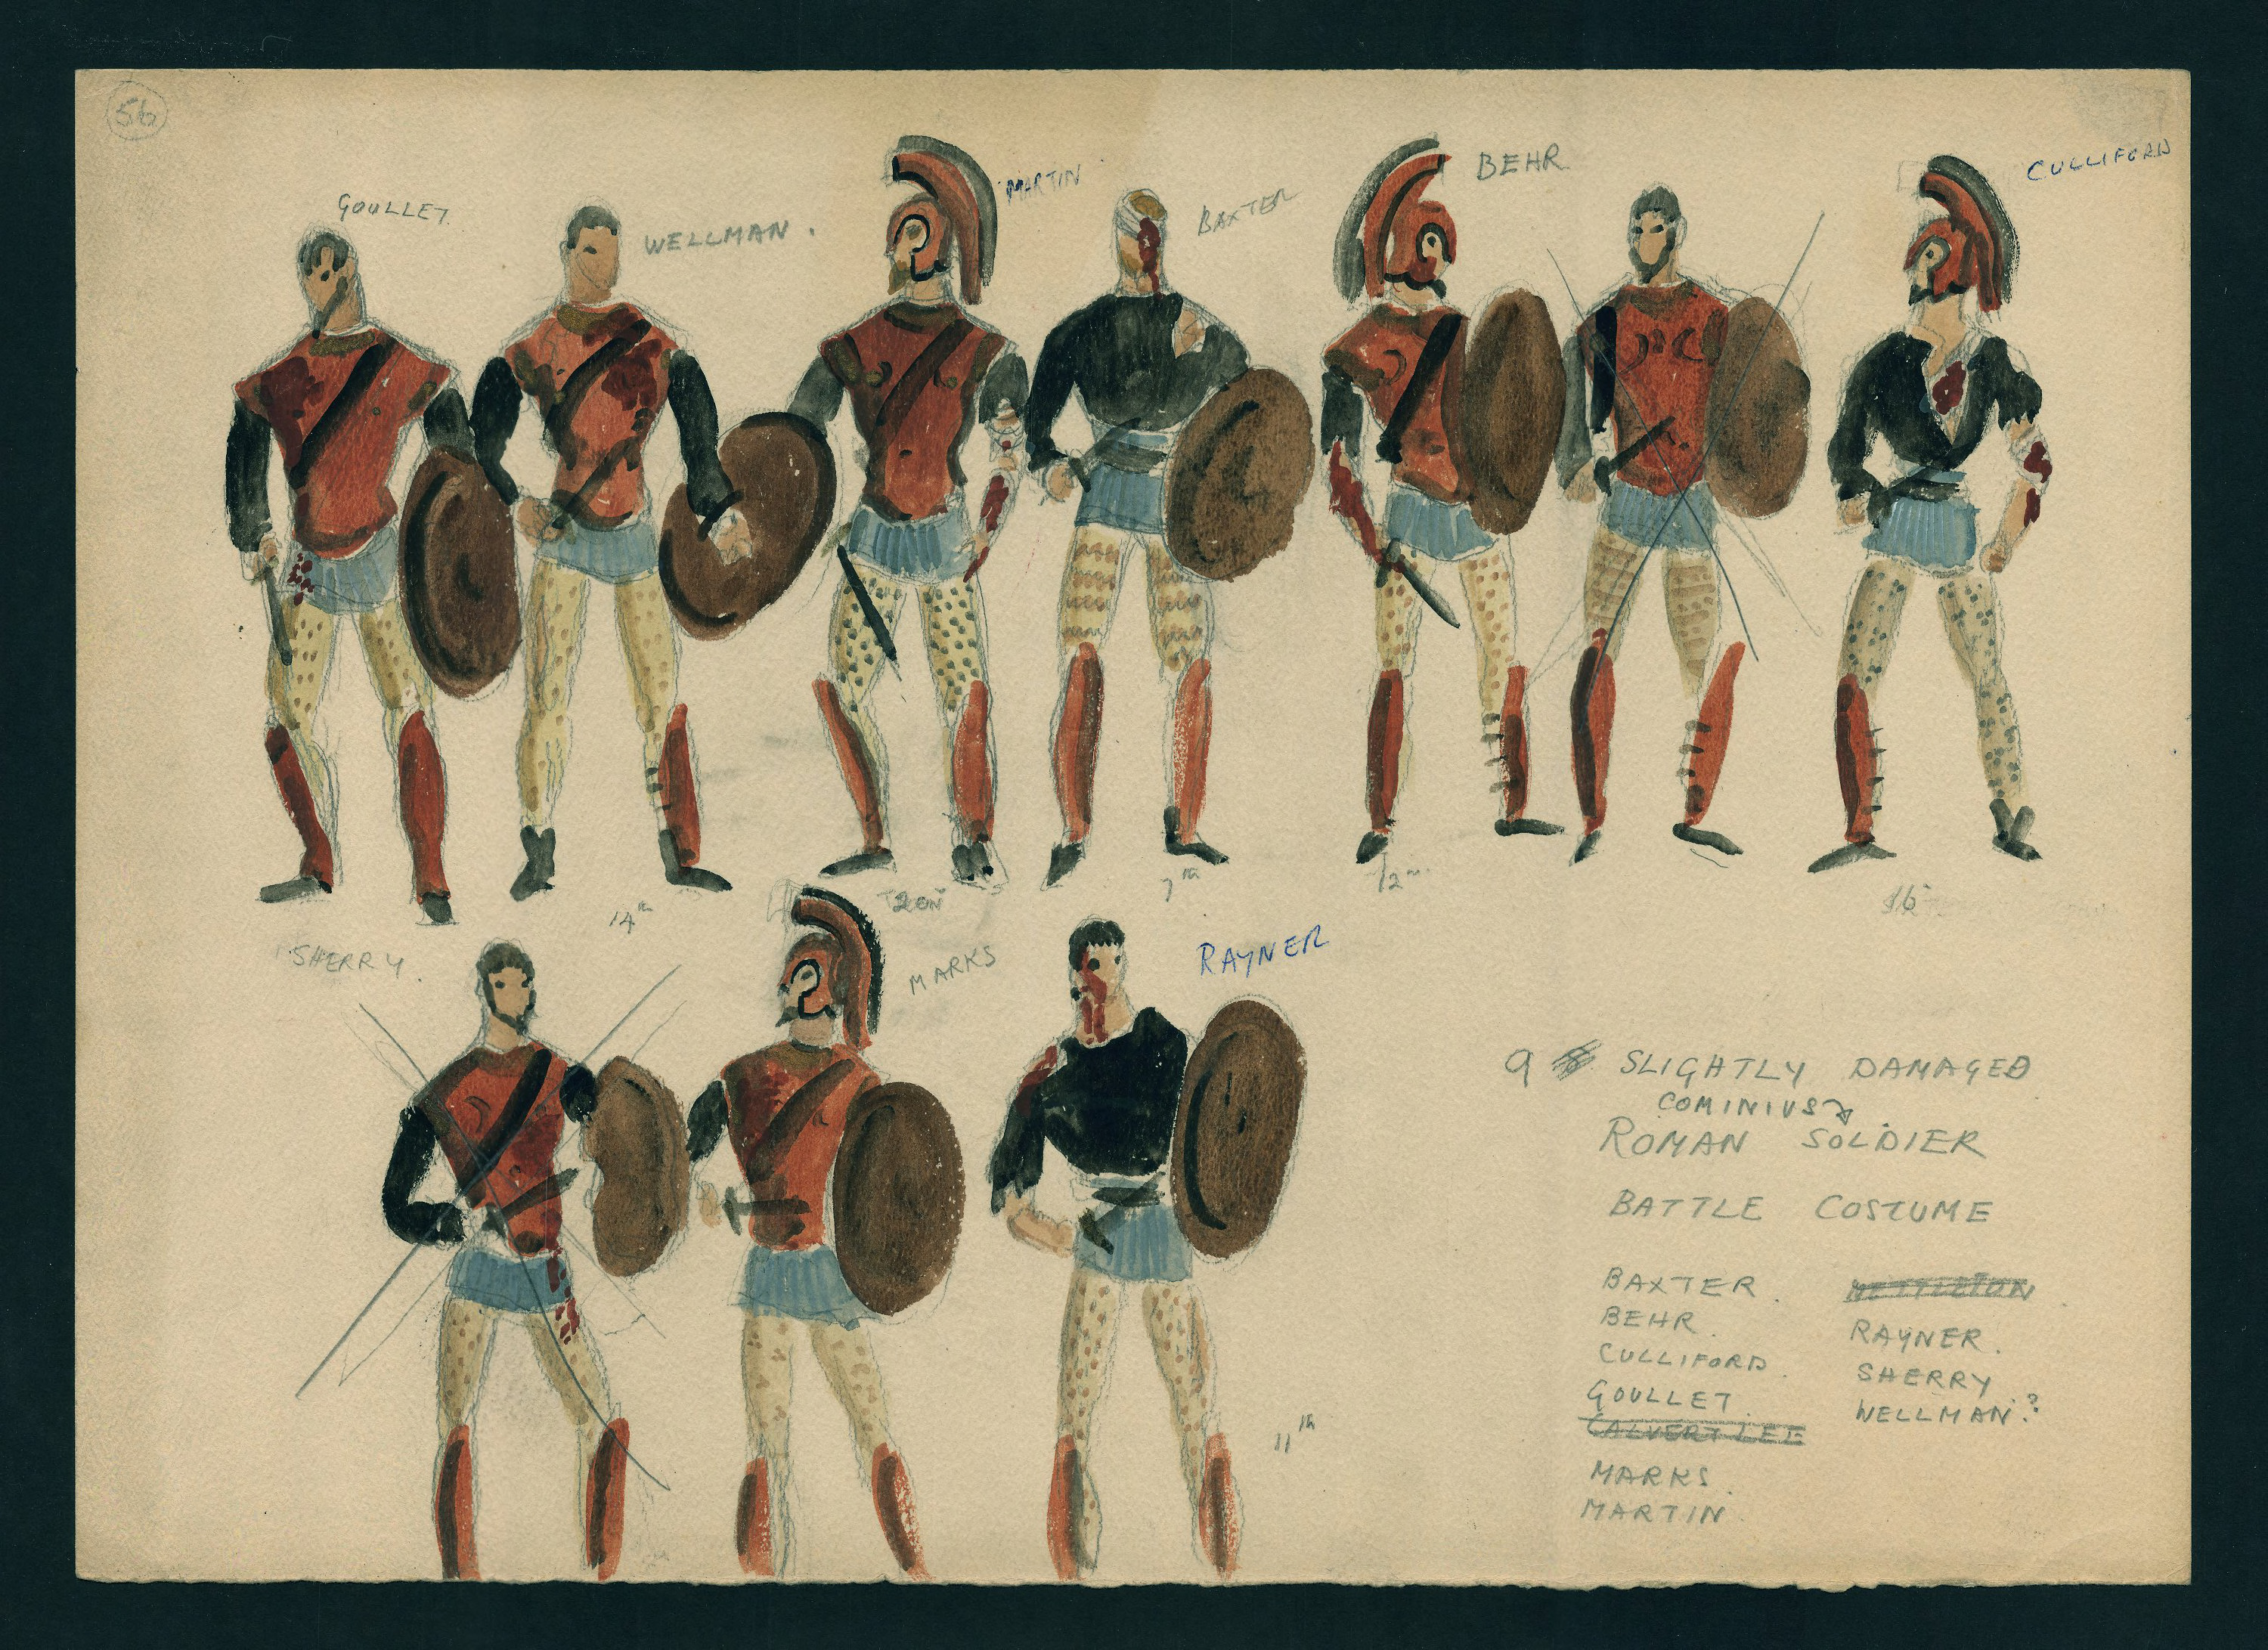 56
GOULLET.
WELLMAN.
MARTIN
BAXTER
BEHR
CULLIFORD
14th
20th
7th
12th
16
SHERRY.
MARKS
RAYNER
11th
9 SLIGHTLY DAMAGED
COMINIUS
ROMAN SOLDIER
BATTLE COSTUME
BAXTER.
BEHR.
CULLIFORD.
GOULLET.
CALVERT LEE
MARKS.
MARTIN.
NETTLETON.
RAYNER.
SHERRY
WELLMAN.?